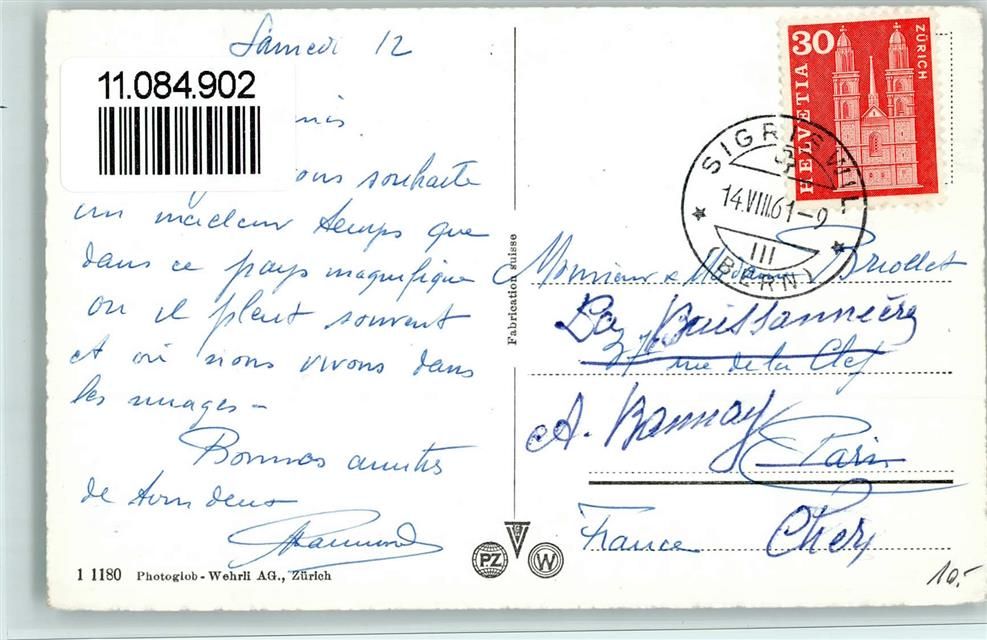 Samedi 12
11.084.902
ous souhaite
un meilleur temps que
dans ce pays magnifique
ou il pleut souvent
et où nous vivons dans
les nuages -
Bonnes amitiés
de tous deux
1 1180 Photoglob - Wehrli AG., Zürich
Fabrication suisse
PZ
W
30
HELVETIA
ZÜRICH
SIGRISWIL
14.VIII.61-9
III
(BERN)
Monsieur & Madame Briollet
La Buissonnière
37 rue de la Clef
A. Bannay
Paris
France
Cher
10.-